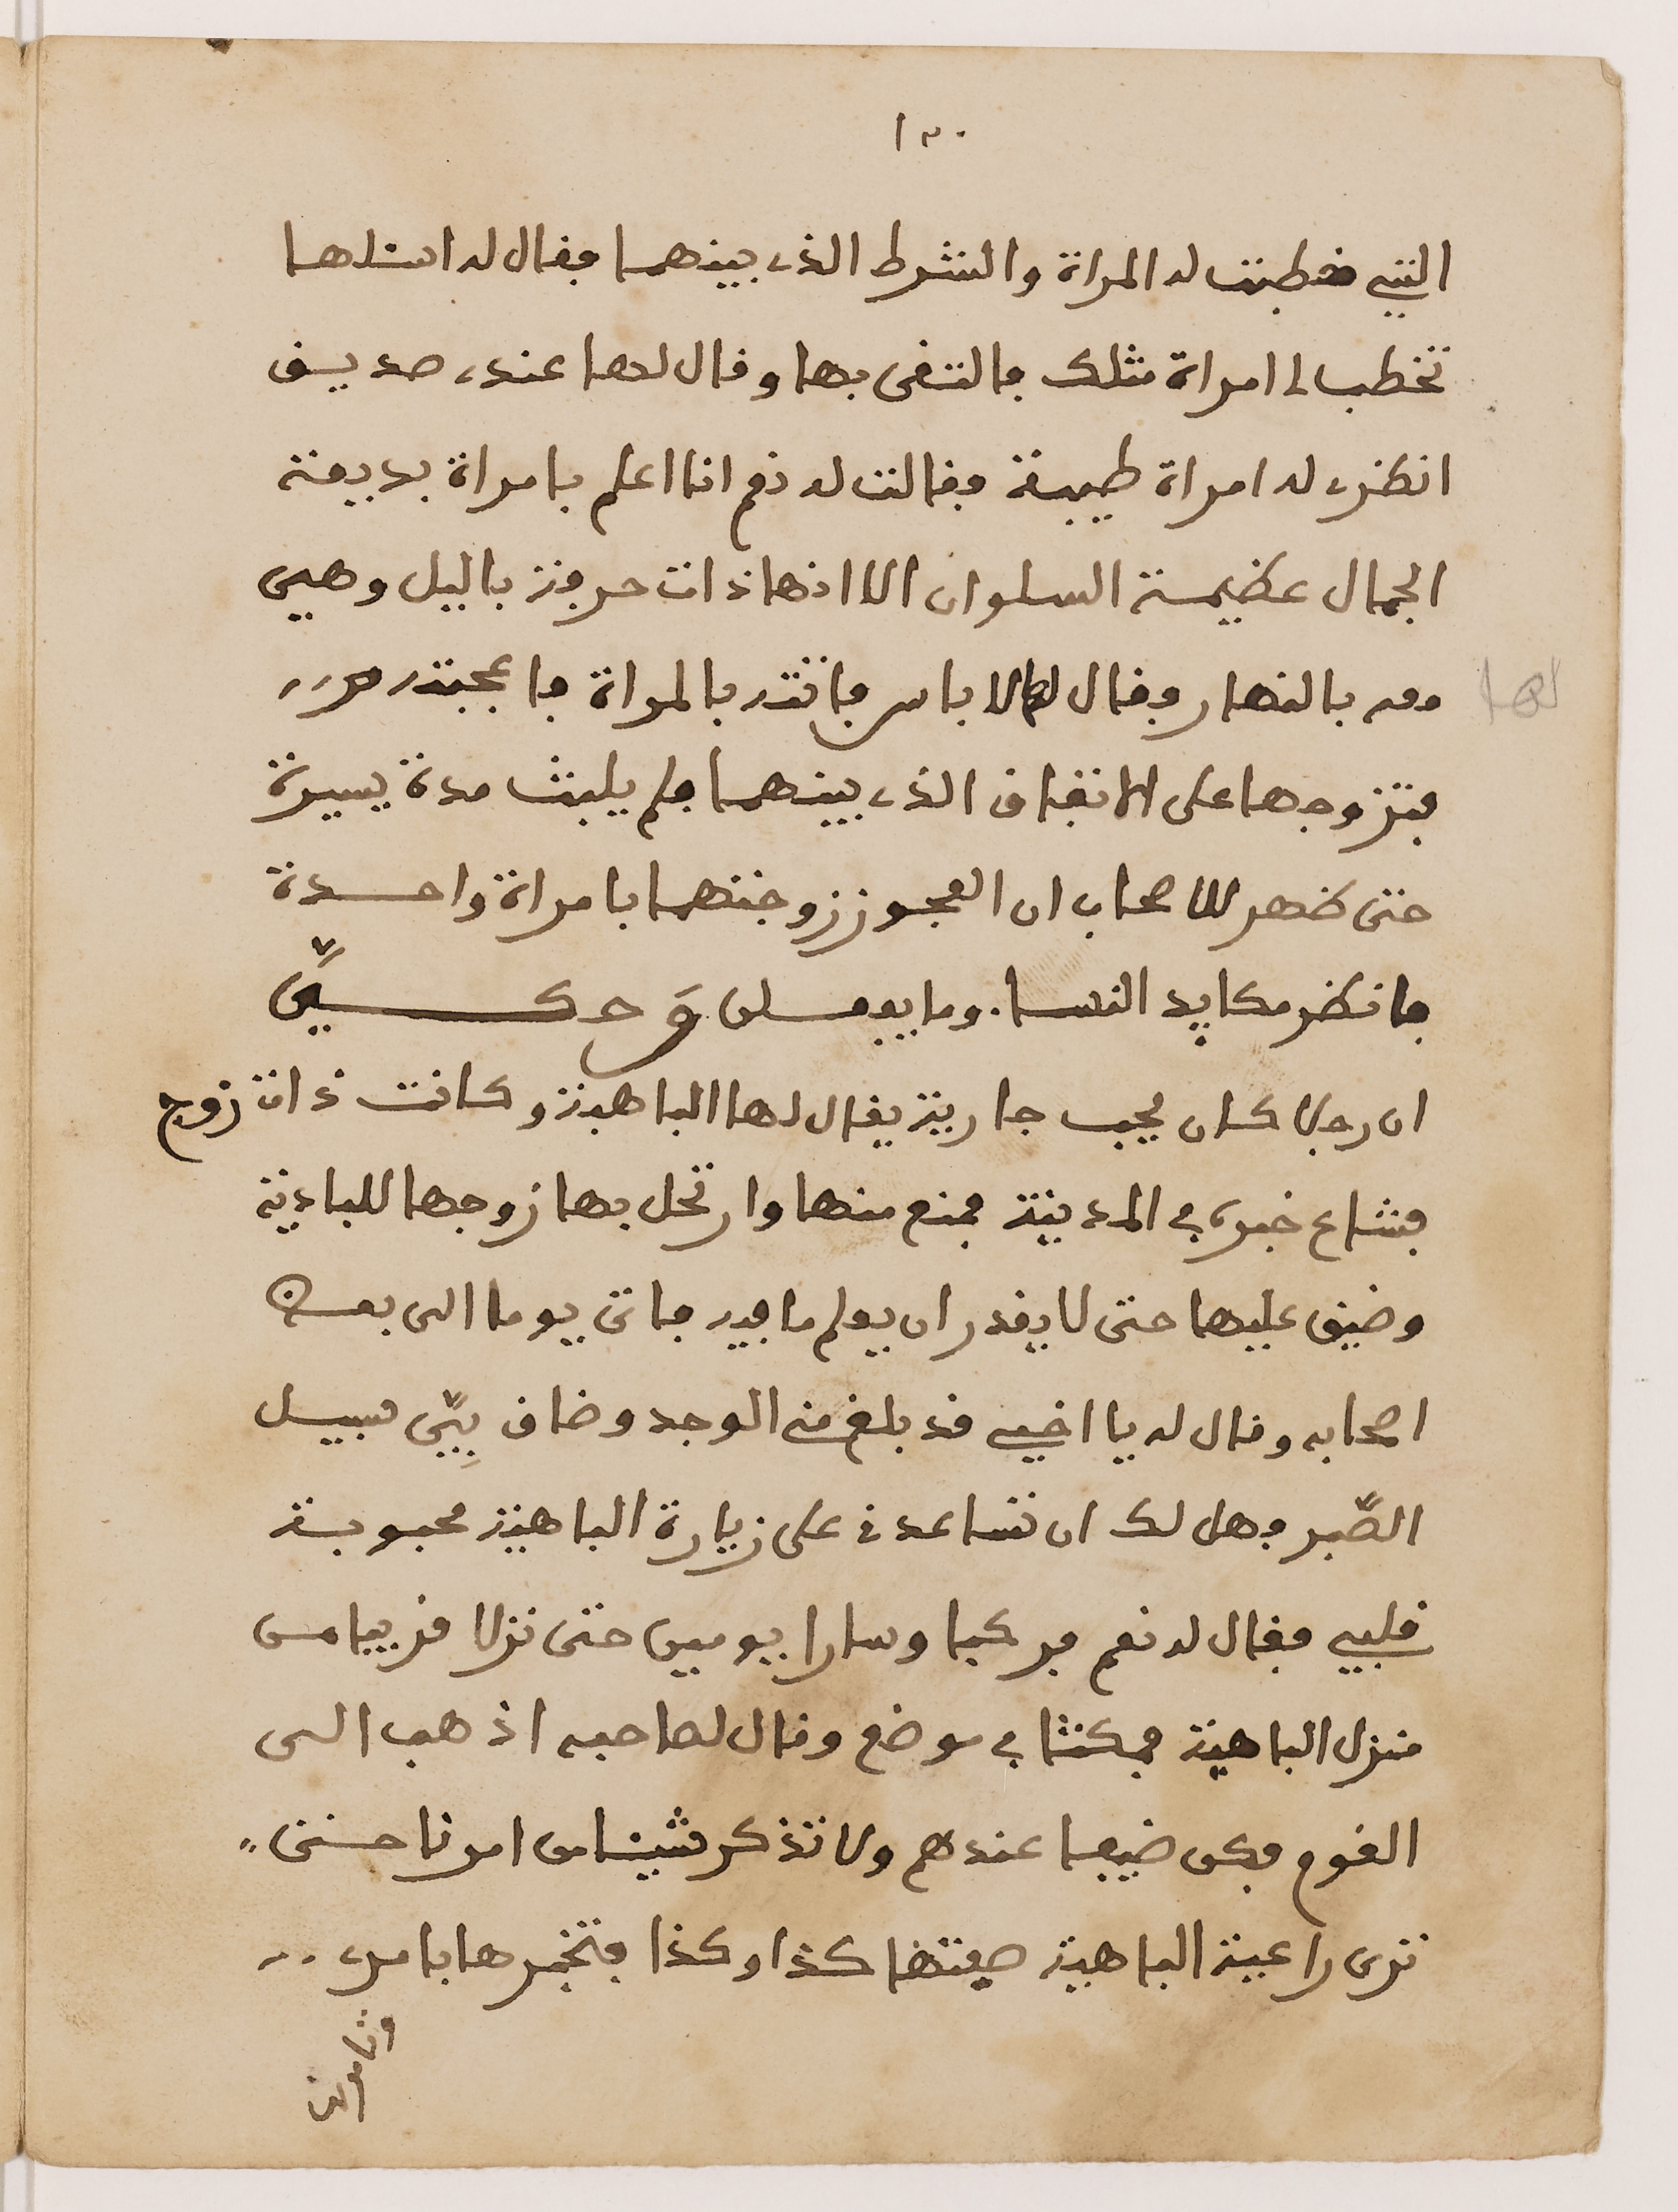 ١٣٠
التي خطبت له المراة والشرط الذي بينهما فقال له اسئلها
تخطب لي امراة مثلك فالتقى بها وقال لها عندي صديق
انظري له امراة طيبة فقالت له نعم انا اعلم بامراة بديعة
الجمال عظيمة السلوان الا انها ذات حرفة باليل وهي
معه بالنهار فقال لها لا باس فاتته بالمراة فاعجبته
فتزوجها على الاتفاق الذي بينهما فلم يلبث مدة يسيرة
حتى ظهر للاصحاب ان العجوز زوجتهما بامراة واحدة
فانظر مكايد النسا وما يفعلن وحكي
ان رجلا كان يحب جارية يقال لها الباهية وكانت ذات زوج
فشاع خبره في المدينة فمنع منها وارتحل بها زوجها للبادية
وضيق عليها حتى لا يقدر ان يعلم ما فيه فاتى يوما الى بعض
اصحابه وقال له يا اخي قد بلغ مني الوجد وضاق بيّ سبيل
الصّبر فهل لك ان تساعدني على زيارة الباهية محبوبة
قلبي فقال له نعم فركبا وسارا يومين حتى نزلا قريبا من
منزل الباهية فمكثا في موضع وقال لصاحبه اذهب الى
القوم فكن ضيفا عندهم ولا تذكر شيئا من امرنا حتى
ترى راعية الباهية صفتها كذا وكذا فتخبرها بامري
لها